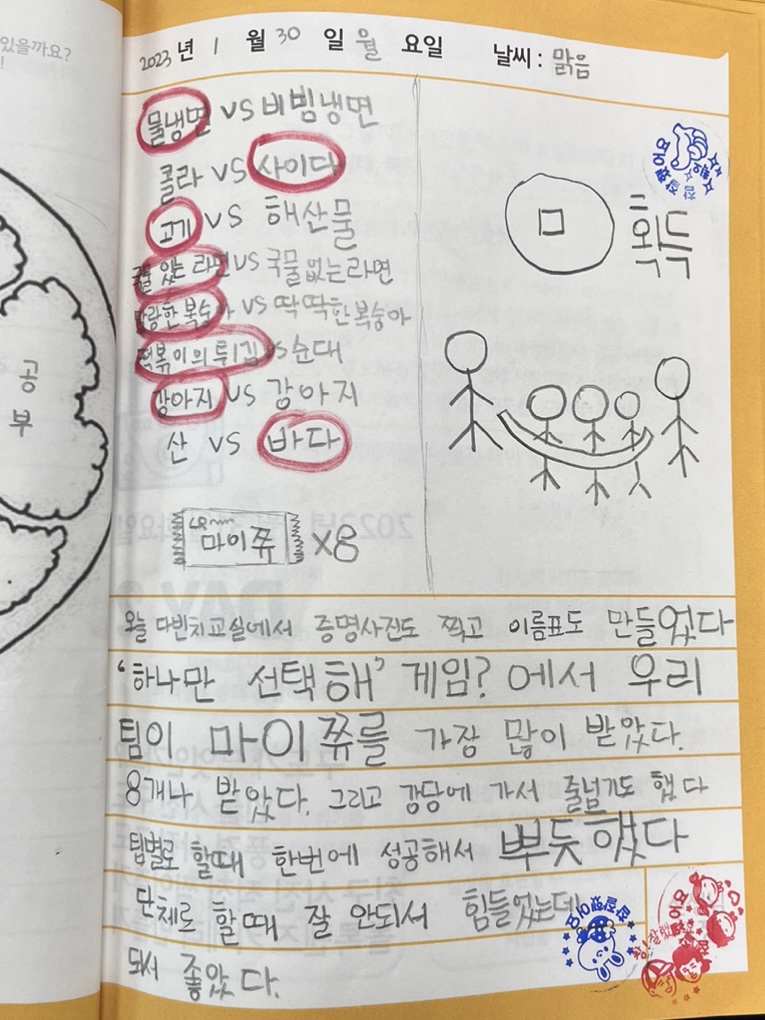 있을까요?
!
공
부
2023년 1월 30일 월요일 날씨: 맑음
물냉면 VS 비빔냉면
콜라 VS 사이다
고기 VS 해산물
국물 있는 라면 VS 국물 없는 라면
말랑한 복숭아 VS 딱딱한 복숭아
떡볶이의 튀김 VS 순대
강아지 VS 강아지
산 VS 바다
마이쮸 X8
ㅁ 획득
참 잘했어요
오늘 다빈치교실에서 증명사진도 찍고 이름표도 만들었다
'하나만 선택해' 게임? 에서 우리
팀이 마이쮸를 가장 많이 받았다.
8개나 받았다. 그리고 강당에 가서 줄넘기도 했다
팀별로 할때 한번에 성공해서 뿌듯했다
단체로 할때 잘 안되서 힘들었는데
되서 좋았다.